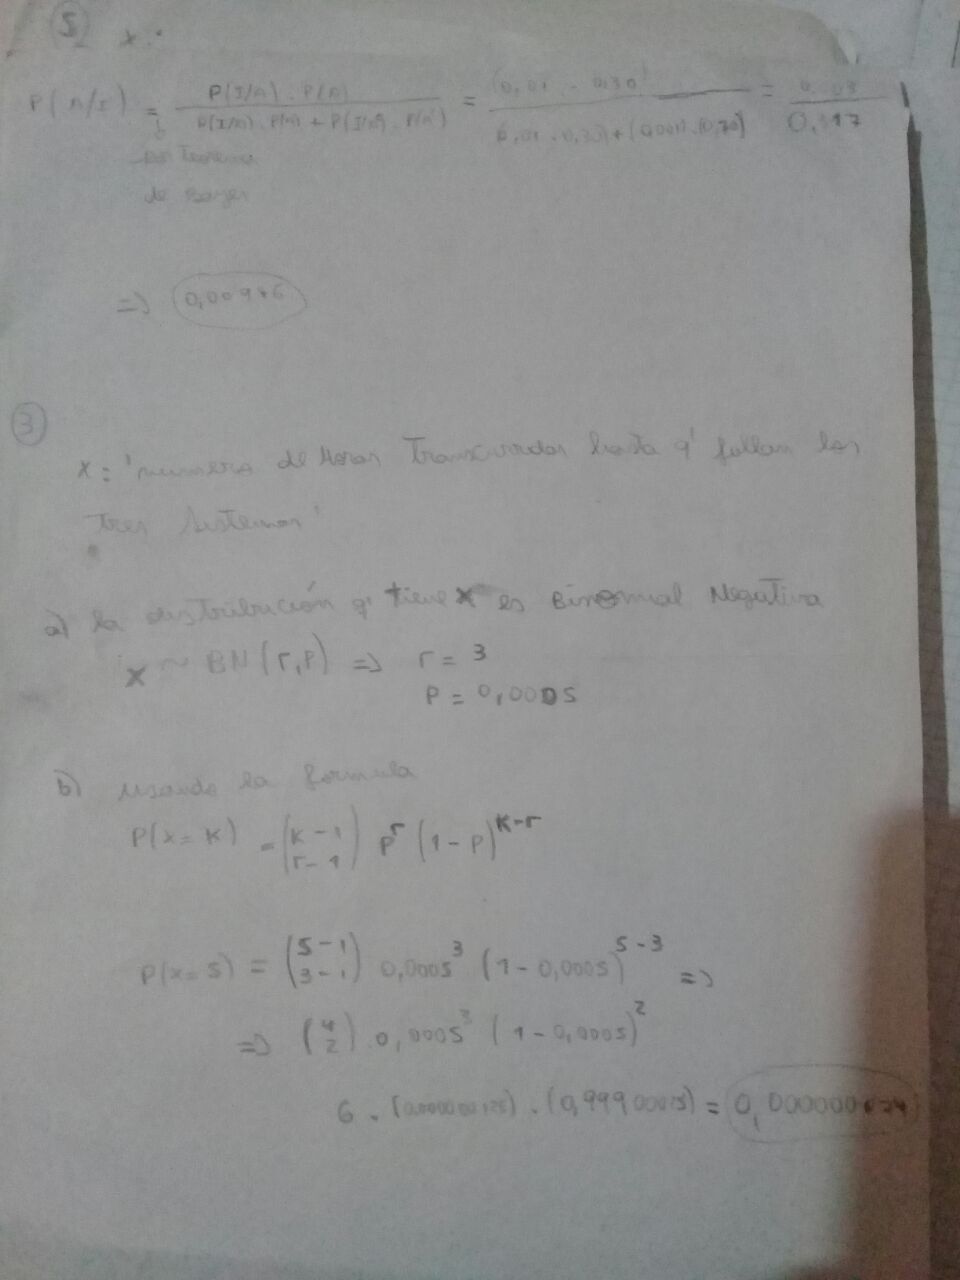 5 x:
P(A/I) = P(I/A) . P(A) / P(I/A) . P(A) + P(I/A') . P(A') = (0,01 . 0,30) / (0,01 . 0,30) + (0,001 . 0,70) = 0,003 / 0,317
por Teorema
de Bayes
=> 0,00946
3
x: 'numero de Horas Transcurridas hasta q' fallan los
tres sistemas'
a) La distribución q' tiene x es Binomial Negativa
x ~ BN(r,p) => r = 3
P = 0,0005
b) usando la formula
P(x=k) = (k-1 r-1) p^r (1-p)^k-r
P(x=5) = (5-1 3-1) 0,0005^3 (1-0,0005)^5-3 =>
=> (4 2) . 0,0005^3 (1-0,0005)^2
6 . (0,000000125) . (0,99900015) =